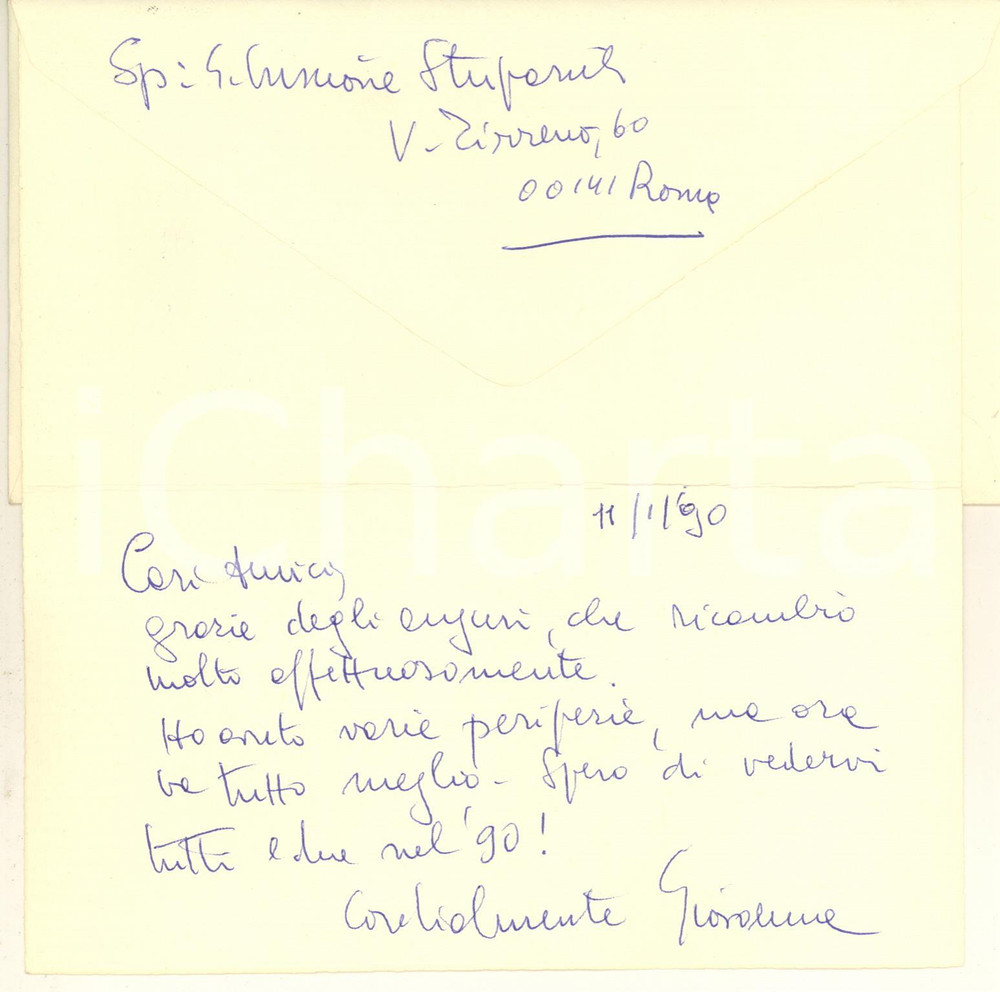 Sp: G. Cusmone Stuparich
V. Tirreno, 60
00141 Roma
iCharta
11/1/'90
Cari Amici,
grazie degli auguri, che ricambio
molto affettuosamente.
Ho avuto varie periperie, ma ora
va tutto meglio - Spero di vedervi
tutti e due nel '90!
Cordialmente Giovanna